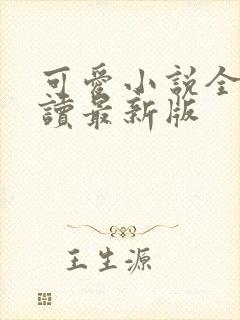 可愛小説全
讀最新版
王生源